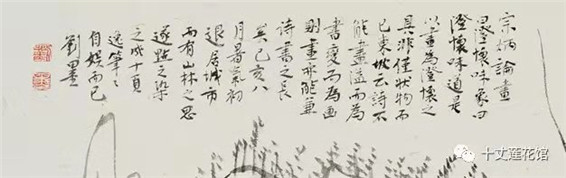 宗炳論畫
澄懷味象曰
澄懷味道是
以畫為澄懷之
具非僅狀物而
已東坡云詩不
能盡溢而為
書變而為画
則畫亦能兼
诗書之長
矣己亥八
月暑氣初
退居城市
而有山林之思
遂點之染
之成十頁
逸筆々
自娱而已
劉墨
十丈莲花馆